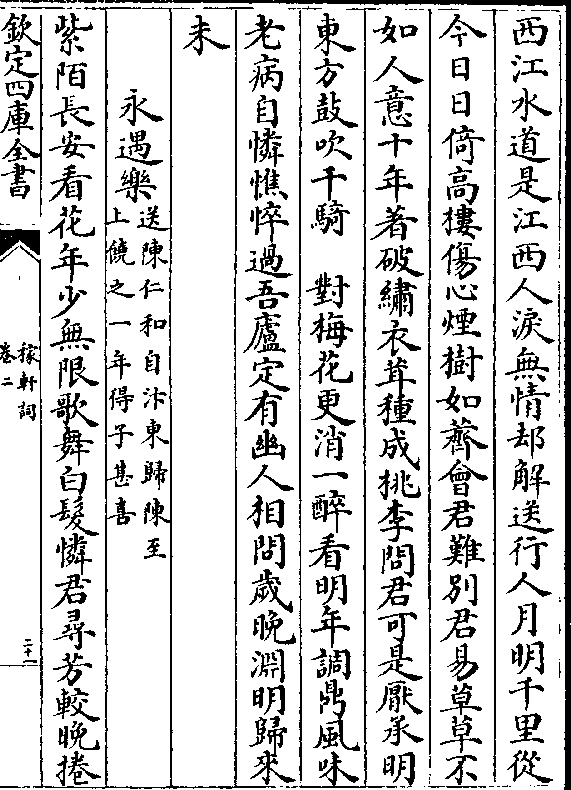 西江水道是江西人淚無情却解送行人月明千里從
今日日倚高樓傷心煙樹如薺會君難別君易草草不
如人意十年著破繡衣茸種成桃李問君可是厭承明
東方鼓吹千騎　對梅花更消一醉看明年調鼎風味
老病自憐憔悴過吾廬定有幽人相問歲晚淵明歸來
未
永遇樂送陳仁和自汴東歸陳至
上饒之一年得子甚喜
紫陌長安看花年少無限歌舞白髮憐君尋芳較晚捲
欽定四庫全書
稼軒詞
卷二
二十一